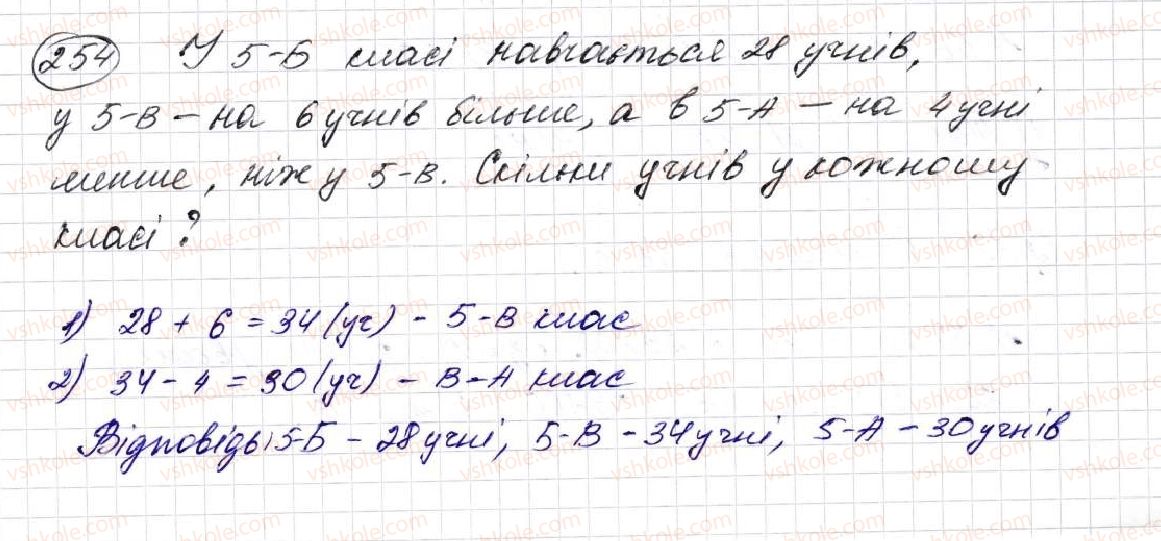 254 У 5-Б класі навчається 28 учнів,
у 5-В – на 6 учнів більше, а в 5-А – на 4 учні
менше, ніж у 5-В. Скільки учнів у кожному
класі?
1) 28 + 6 = 34 (уч) - 5-В клас
2) 34 - 4 = 30 (уч) - В-А клас
Відповідь: 5-Б - 28 учні, 5-В - 34 учні, 5-А - 30 учнів